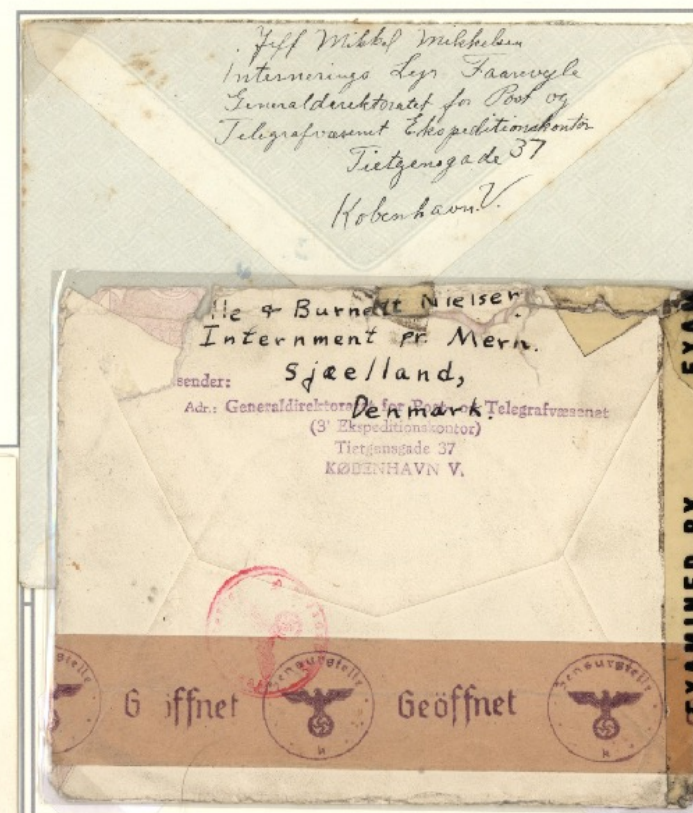 Jeff Mikkel Mikkelsen
Internerings Lejr Faarevejle
Generaldirektoratet for Post og
Telegrafvæsenet Ekspeditionskontor
Tietgensgade 37
København V.
lle & Burnett Nielsen
Internment pr. Mern.
Sjælland,
Denmark.
sender:
Adr.: Generaldirektoratet for Post- og Telegrafvæsenet
(3' Ekspeditionskontor)
Tietgensgade 37
KØBENHAVN V.
EXAM
EXAMINED BY
stelle
G öffnet
Zensurstelle
k
Geöffnet
Zensurstelle
k